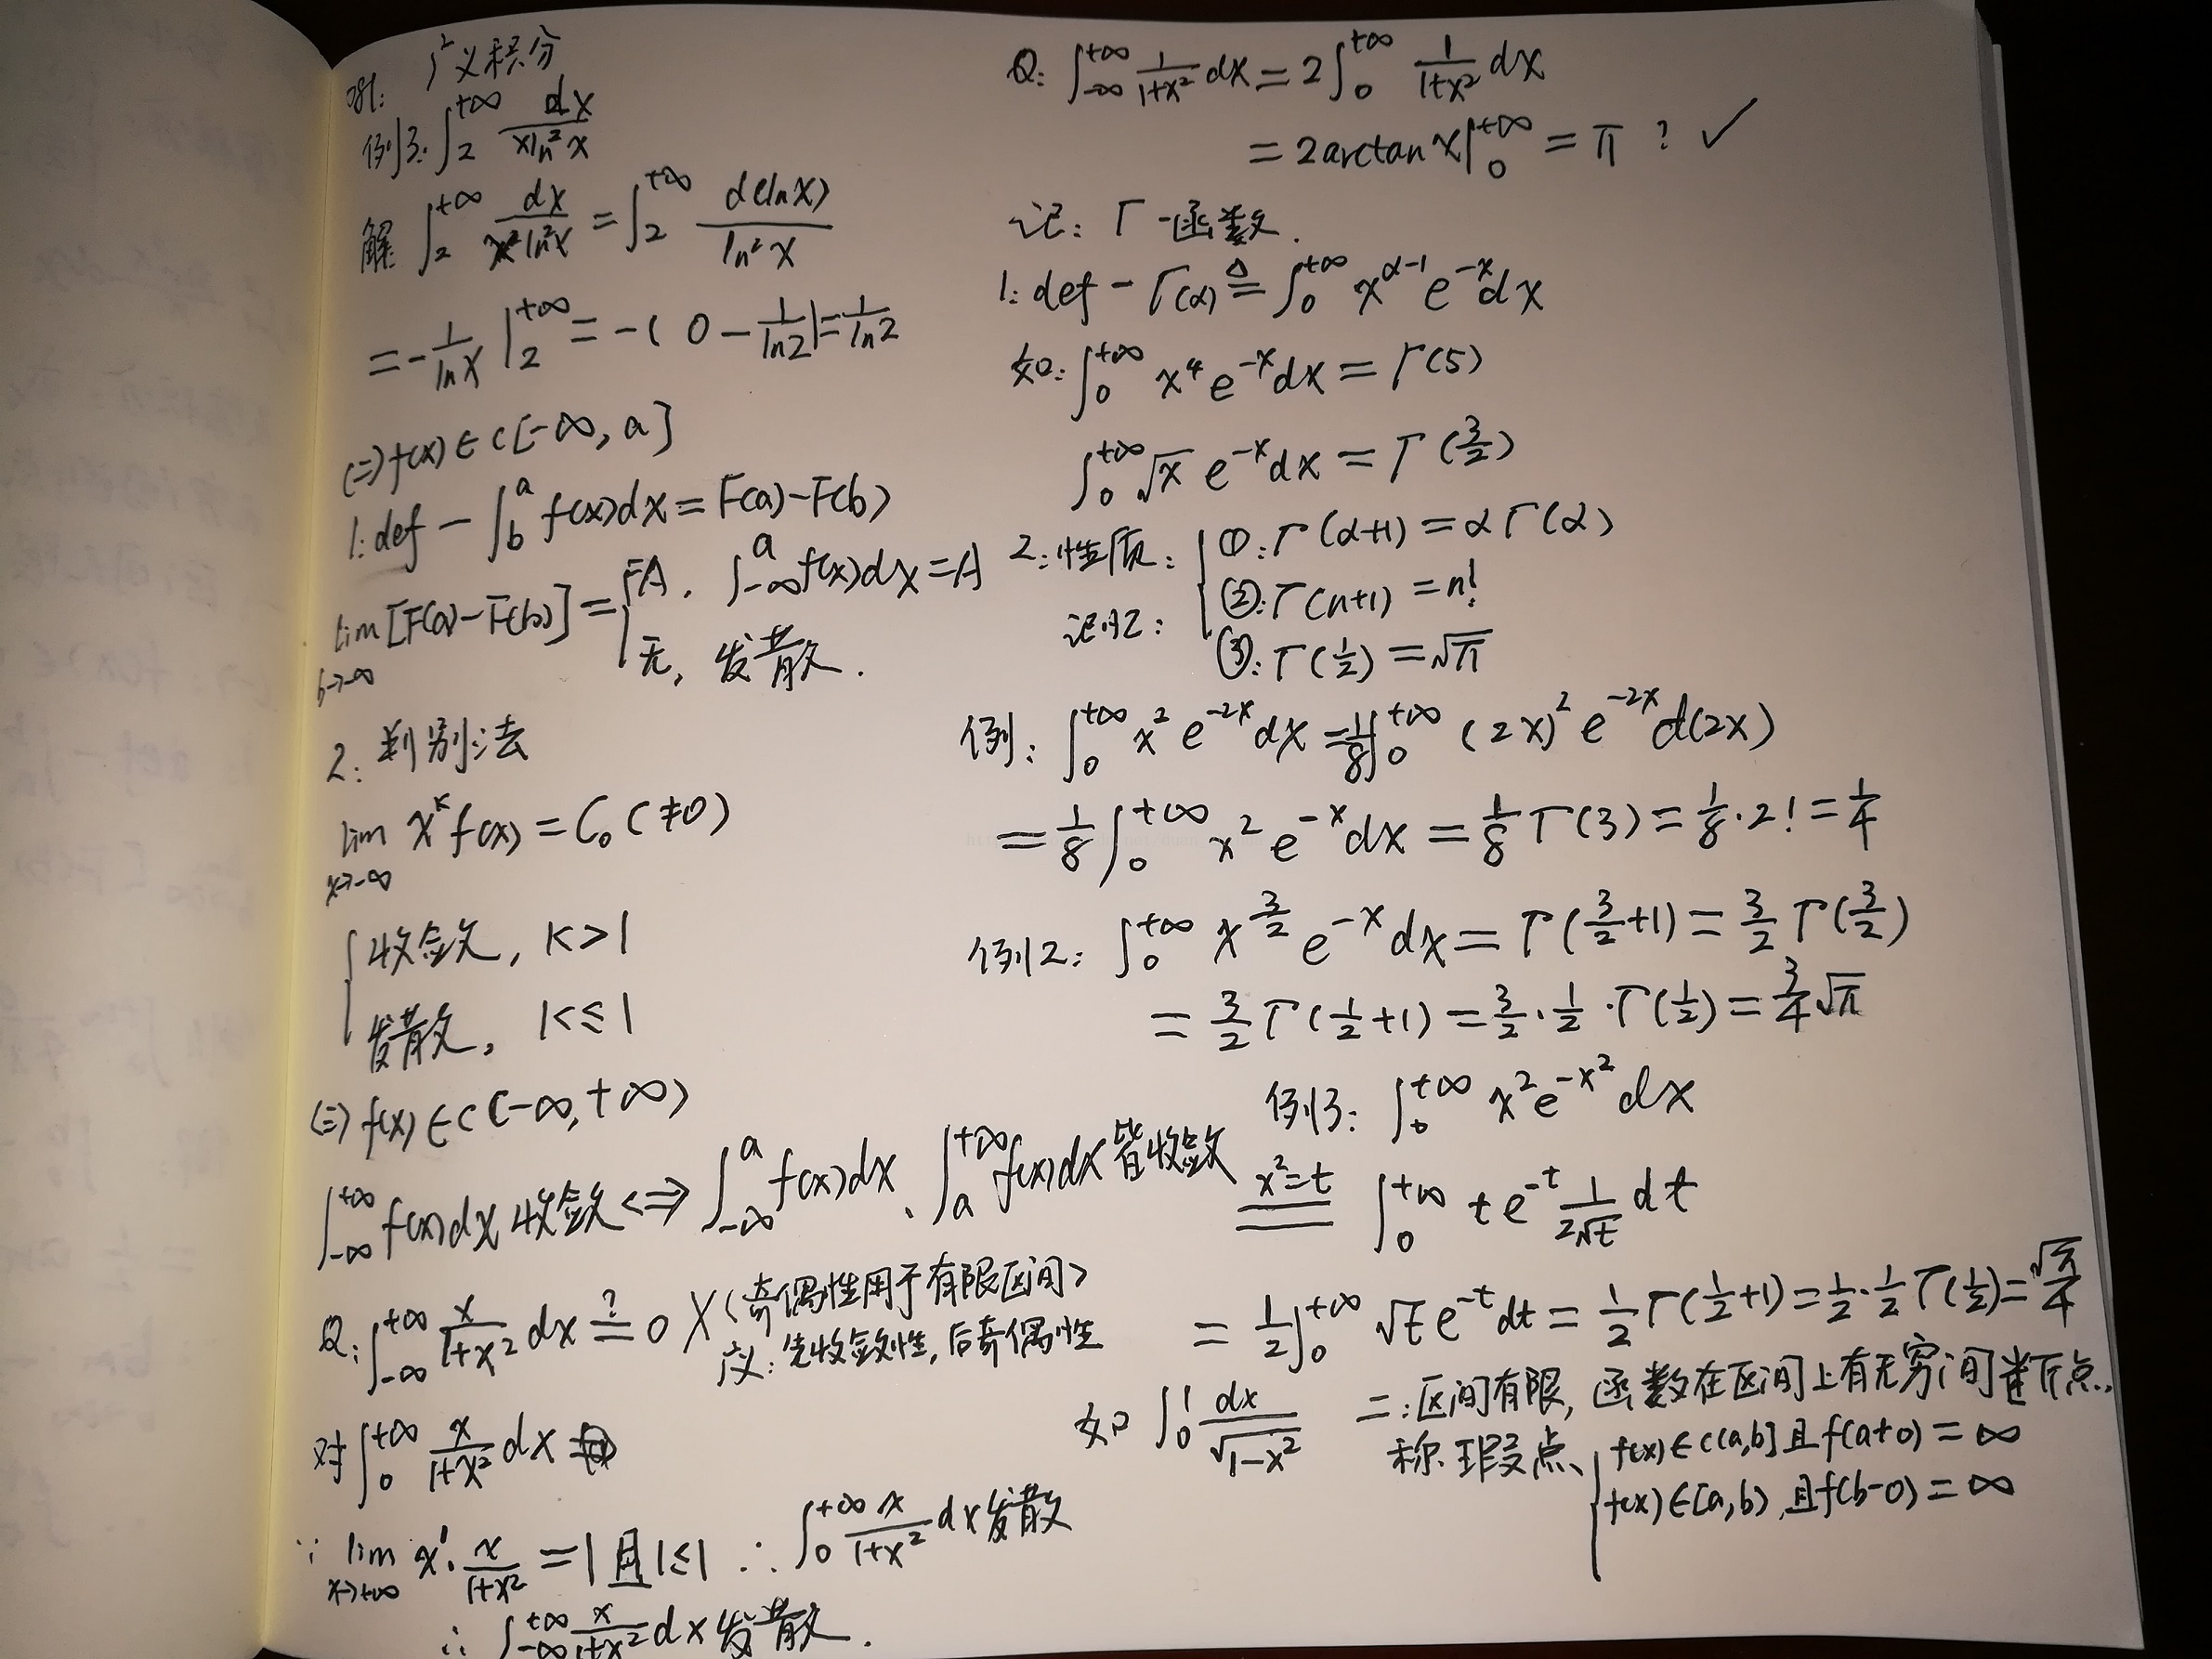 广义积分
例3: ∫₂^{+∞} dx/(xln²x)
解 ∫₂^{+∞} dx/(x ln²x) = ∫₂^{+∞} d(lnx)/ln²x
= -1/lnx |₂^{+∞} = -( 0 - 1/ln2 ) = 1/ln2
(二) f(x) ∈ C[-∞, a]
1: def - ∫_b^a f(x)dx = F(a)-F(b)
lim_{b→-∞} [F(a)-F(b)] = { =A, ∫_{-∞}^a f(x)dx = A
无, 发散.
2: 判别法
lim_{x→-∞} x^k f(x) = C₀ (≠0)
{ 收敛, k>1
发散, k≤1
(三) f(x) ∈ C(-∞,+∞)
∫_{-∞}^{+∞} f(x)dx 收敛 <=> ∫_{-∞}^a f(x)dx、∫_a^{+∞} f(x)dx 皆收敛
Q: ∫_{-∞}^{+∞} x/(1+x²) dx ?= 0 X (奇偶性用于有限区间)
广义: 先收敛性, 后奇偶性
对 ∫₀^{+∞} x/(1+x²) dx
∵ lim_{x→+∞} x¹· x/(1+x²) = 1 且 1≤1 ∴ ∫₀^{+∞} x/(1+x²) dx 发散
∴ ∫_{-∞}^{+∞} x/(1+x²) dx 发散.
Q: ∫_{-∞}^{+∞} 1/(1+x²) dx = 2∫₀^{+∞} 1/(1+x²) dx
= 2arctanx|₀^{+∞} = π ? ✓
记: Γ-函数.
1: def - Γ(α) ≜ ∫₀^{+∞} x^{α-1} e^{-x} dx
如: ∫₀^{+∞} x⁴ e^{-x} dx = Γ(5)
∫₀^{+∞} √x e^{-x} dx = Γ(3/2)
2: 性质: { ①: Γ(α+1) = αΓ(α)
②: Γ(n+1) = n!
记忆: ③: Γ(1/2) = √π
例: ∫₀^{+∞} x² e^{-2x} dx = 1/8 ∫₀^{+∞} (2x)² e^{-2x} d(2x)
= 1/8 ∫₀^{+∞} x² e^{-x} dx = 1/8 Γ(3) = 1/8 · 2! = 1/4
例2: ∫₀^{+∞} x^{3/2} e^{-x} dx = Γ(3/2+1) = 3/2 Γ(3/2)
= 3/2 Γ(1/2+1) = 3/2 · 1/2 · Γ(1/2) = 3/4 √π
例3: ∫₀^{+∞} x² e^{-x²} dx
x²=t == ∫₀^{+∞} t e^{-t} 1/(2√t) dt
= 1/2 ∫₀^{+∞} √t e^{-t} dt = 1/2 Γ(1/2+1) = 1/2 · 1/2 Γ(1/2) = √π/4
二: 区间有限, 函数在区间上有无穷间断点,
如 ∫₀¹ dx/√(1-x²)
称瑕点、{ f(x) ∈ C(a,b] 且 f(a+0) = ∞
f(x) ∈ [a,b), 且 f(b-0) = ∞